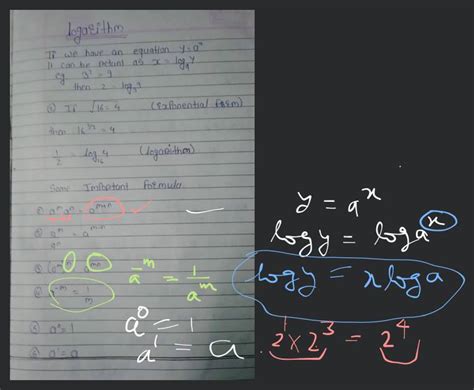 Logarithm
If we have an equation y=aˣ
It can be retant as x = logₐy
eg 3² = 9
then 2 = log₃9
② If √16 = 4 (Exponential form)
then 16^(1/2) = 4
1/2 = log₁₆ 4 (logarithm)
Some Important Formula
① aᵐ aⁿ = aᵐ⁺ⁿ
② aᵐ/aⁿ = aᵐ⁻ⁿ
③ mn
④ a⁻ᵐ = 1/m
⑤ a⁰ = 1
⑥ a¹ = a
a⁻ᵐ = 1/aᵐ
a⁰ = 1
a¹ = a
y = aˣ
log y = log aˣ
log y = x log a
2¹ × 2³ = 2⁴